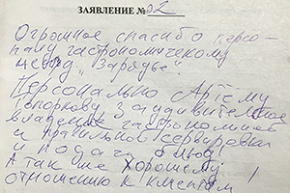 ЗАЯВЛЕНИЕ № 02
Огромное спасибо персо-
налу гастрономическому
"Зарядье".
Персонально Артёму
Топоркову за удивительное
владение гастрономией
и правильной сервировки
и подачи блюд.
А также хорошему
отношению к клиентам!